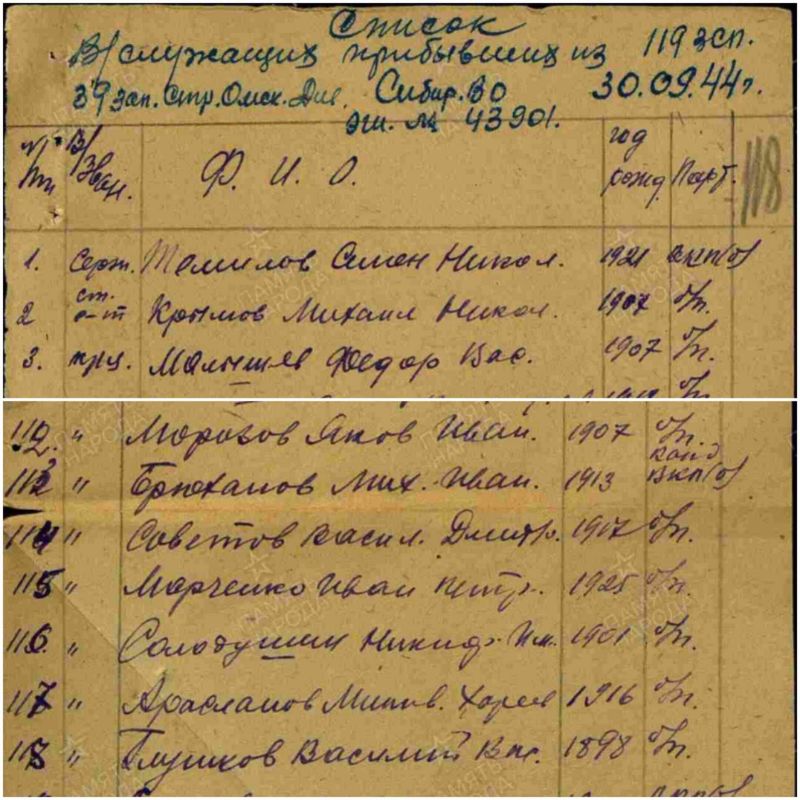 Список
В/служащих прибывших из 119 зсп.
39 зап. стр. Омск. див. Сибир. ВО 30.09.44 г.
эш. № 43901.
№ пп В/зван. Ф. И. О. год рожд Парт. 118
1. серж. Томилов Семен Никол. 1921 вкп(б)
2 ст. с-т Крымов Михаил Никол. 1907 б/п.
3. Малышев Федор Вас. 1907 б/п.
112. " Морозов Яков Иван. 1907 б/п.
113 " Брюханов Мих. Иван. 1913 канд вкп(б)
114 " Советов Васил. Дмитр. 1907 б/п.
115 " Марченко Иван Петр. 1925 б/п.
116 " Солодушин Никиф. 1901 б/п.
117 " Арасланов 1916 б/п.
118 " Глушков Василий Вас. 1898 б/п.